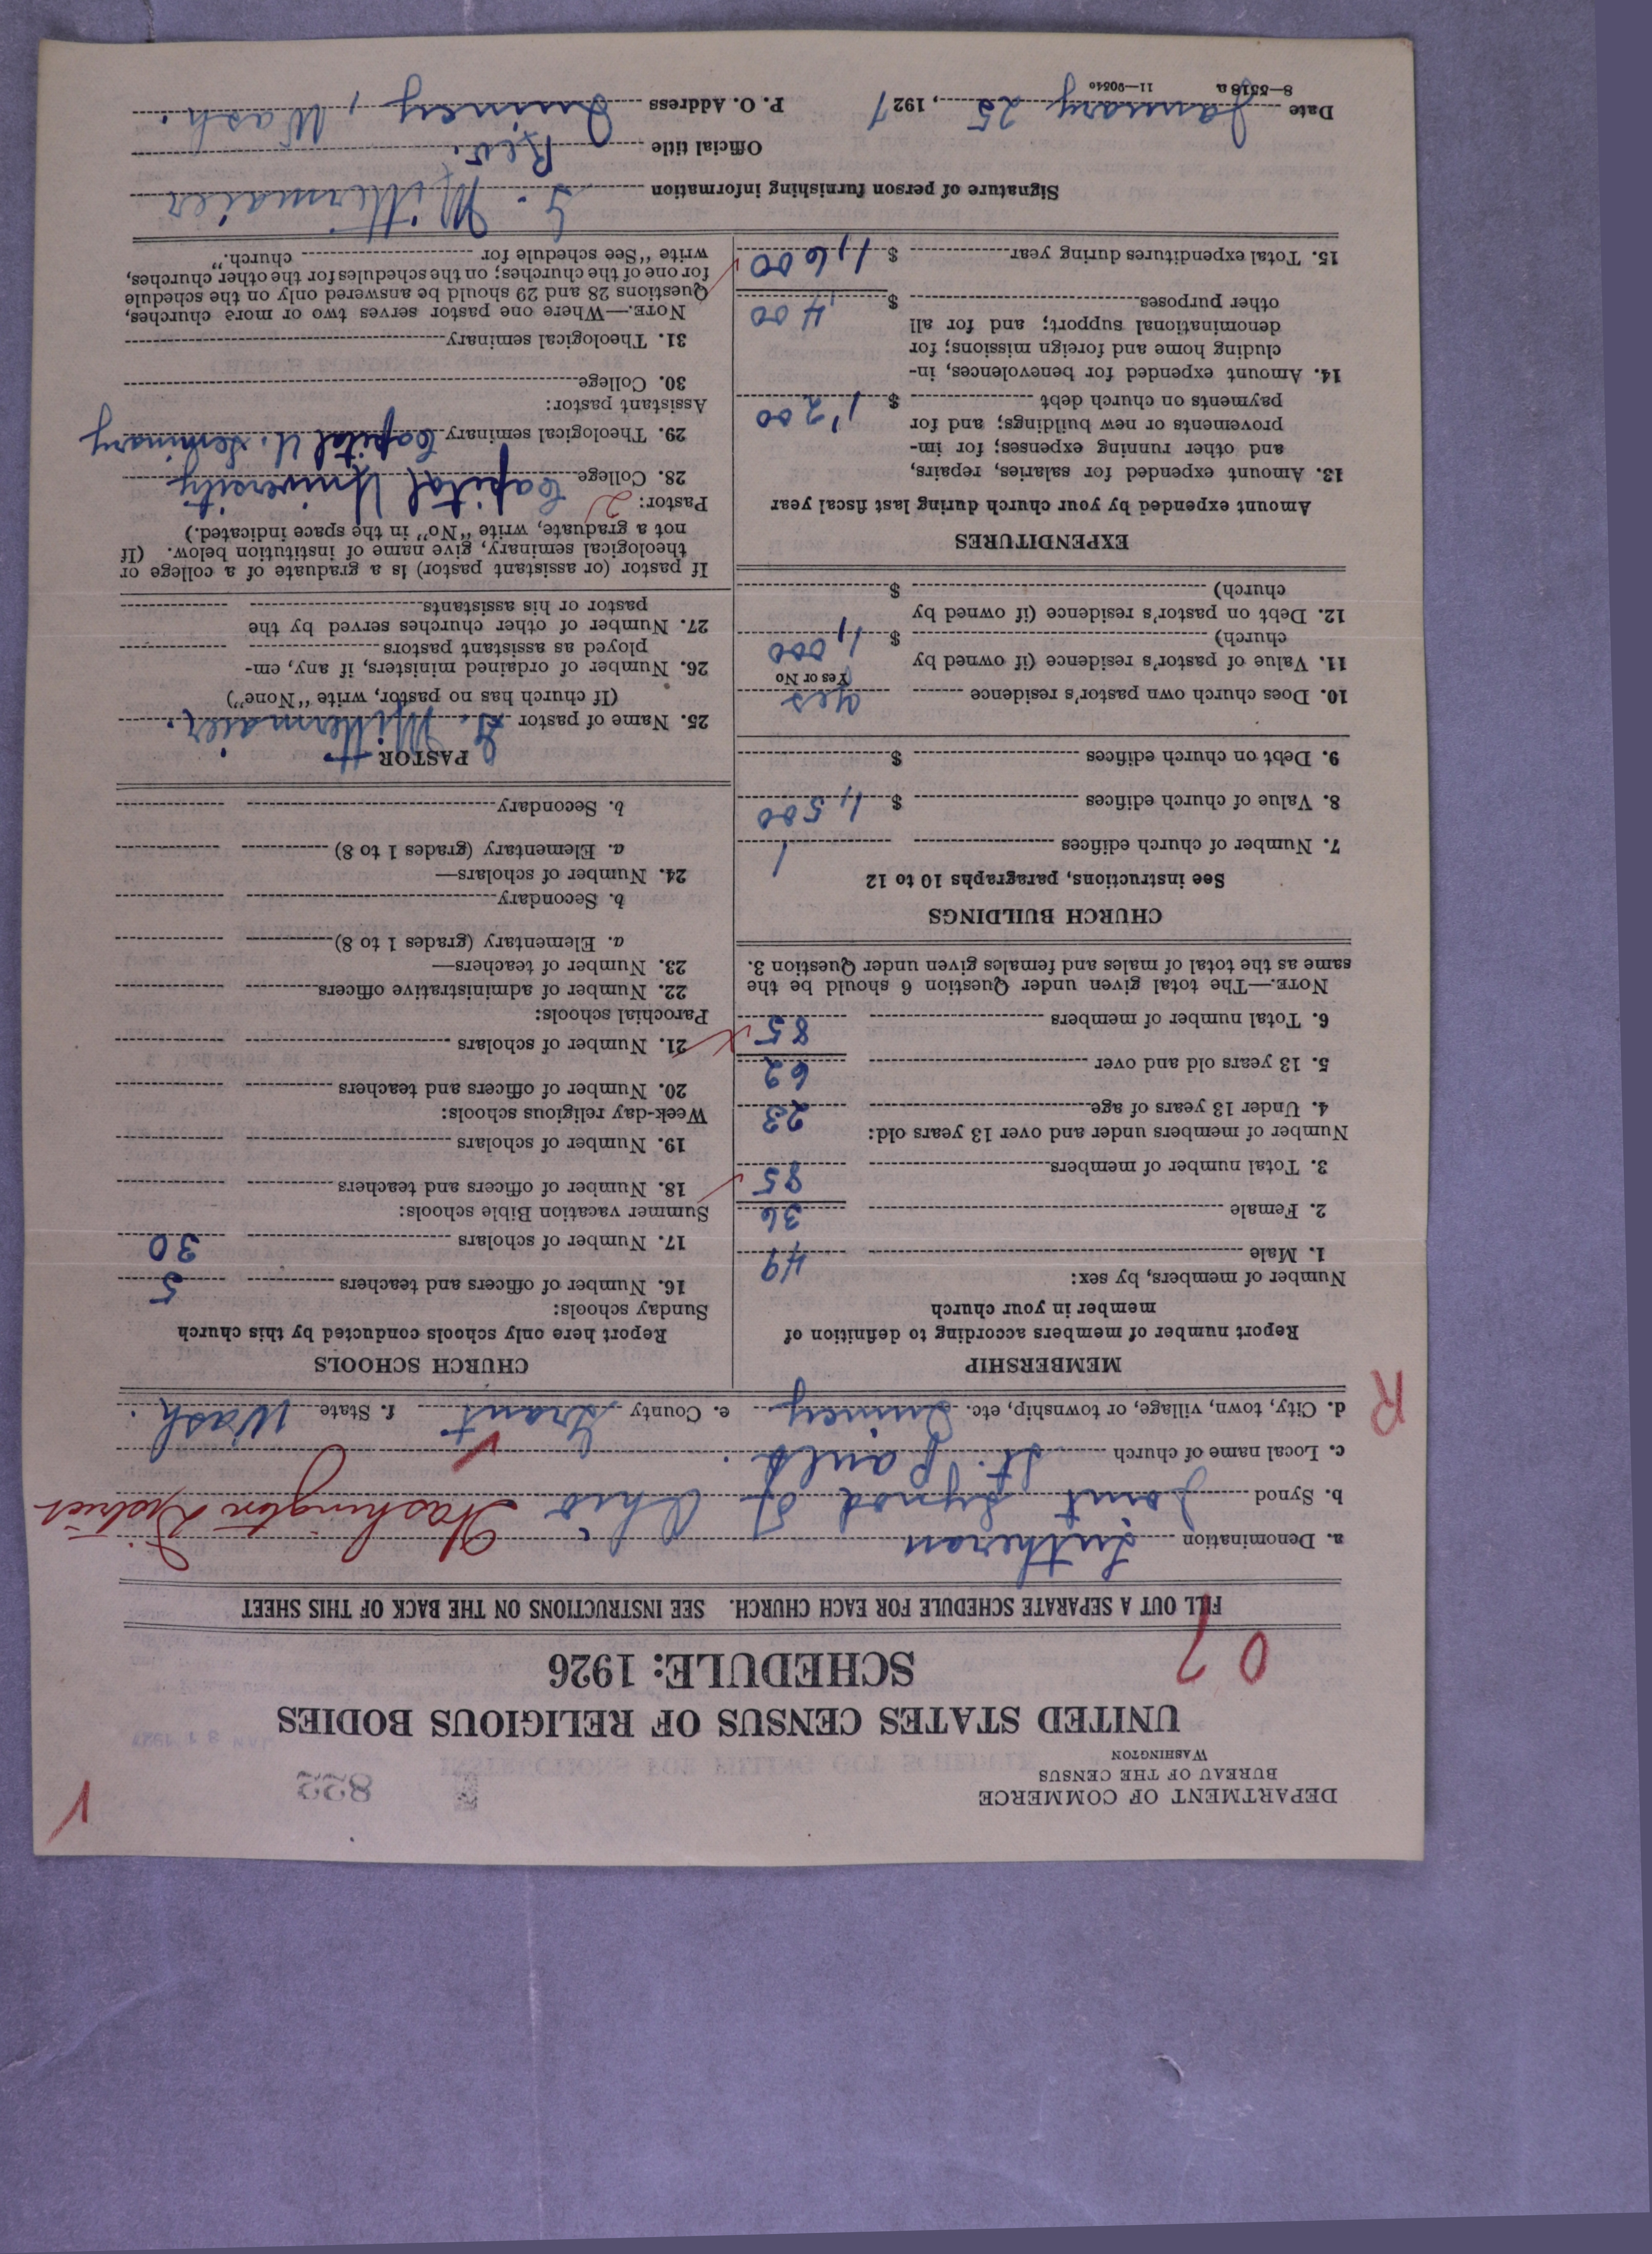 DEPARTMENT OF COMMERCE
BUREAU OF THE CENSUS
WASHINGTON
822
UNITED STATES CENSUS OF RELIGIOUS BODIES
SCHEDULE: 1926
07
FILL OUT A SEPARATE SCHEDULE FOR EACH CHURCH. SEE INSTRUCTIONS ON THE BACK OF THIS SHEET
a. Denomination Lutheran
b. Synod Joint Synod of Ohio Washington District
c. Local name of church St. Pauls.
d. City, town, village, or township, etc. Quincy e. County Grant f. State Wash.
R
MEMBERSHIP
Report number of members according to definition of
member in your church
Number of members, by sex:
1. Male 49
2. Female 36
3. Total number of members 85
Number of members under and over 13 years old:
4. Under 13 years of age 23
5. 13 years old and over 62
6. Total number of members 85
NOTE.—The total given under Question 6 should be the
same as the total of males and females given under Question 3.
CHURCH BUILDINGS
See instructions, paragraphs 10 to 12
7. Number of church edifices 1
8. Value of church edifices $ 1,500
9. Debt on church edifices $
10. Does church own pastor's residence yes
Yes or No
11. Value of pastor's residence (if owned by
church) $ 1,000
12. Debt on pastor's residence (if owned by
church) $
EXPENDITURES
Amount expended by your church during last fiscal year
13. Amount expended for salaries, repairs,
and other running expenses; for im-
provements or new buildings; and for
payments on church debt $ 1,200
14. Amount expended for benevolences, in-
cluding home and foreign missions; for
denominational support; and for all
other purposes $ 400
15. Total expenditures during year $ 1,600
CHURCH SCHOOLS
Report here only schools conducted by this church
Sunday schools:
16. Number of officers and teachers 5
17. Number of scholars 30
Summer vacation Bible schools:
18. Number of officers and teachers
19. Number of scholars
Week-day religious schools:
20. Number of officers and teachers
21. Number of scholars
Parochial schools:
22. Number of administrative officers
23. Number of teachers—
a. Elementary (grades 1 to 8)
b. Secondary
24. Number of scholars—
a. Elementary (grades 1 to 8)
b. Secondary
PASTOR
25. Name of pastor G. Mittermaier.
(If church has no pastor, write "None")
26. Number of ordained ministers, if any, em-
ployed as assistant pastors
27. Number of other churches served by the
pastor or his assistants
If pastor (or assistant pastor) is a graduate of a college or
theological seminary, give name of institution below. (If
not a graduate, write "No" in the space indicated.)
Pastor: 2
28. College Capital University
29. Theological seminary Capital U. Seminary
Assistant pastor:
30. College
31. Theological seminary
NOTE.—Where one pastor serves two or more churches,
Questions 28 and 29 should be answered only on the schedule
for one of the churches; on the schedules for the other churches,
write "See schedule for church."
Signature of person furnishing information G. Mittermaier
Official title Rev.
Date January 25, 1927 P. O. Address Quincy, Wash.
8—5518a 11—90540